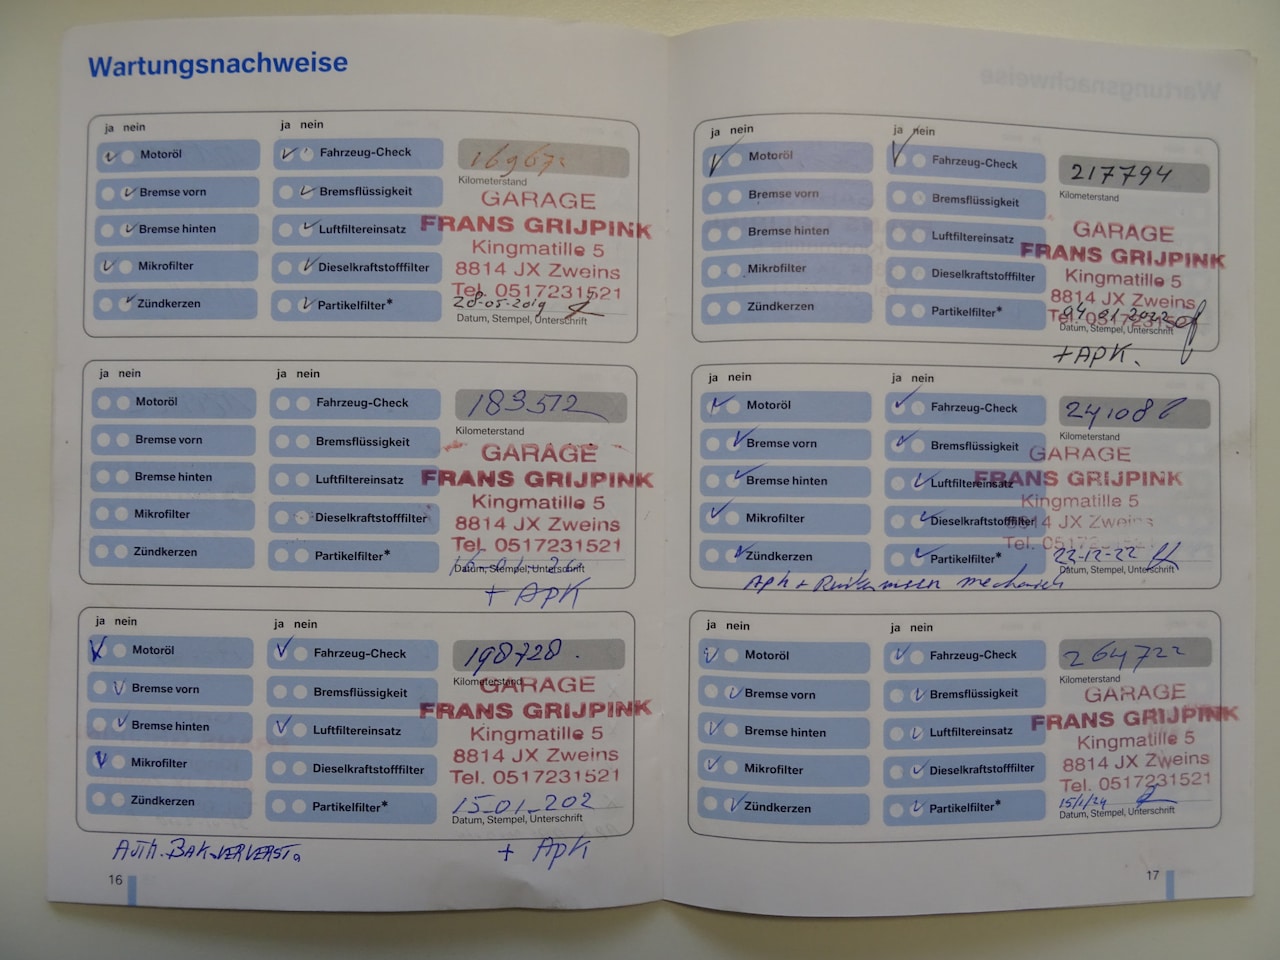 Wartungsnachweise
ja nein
ja nein
Motoröl
Fahrzeug-Check
Bremse vorn
Bremsflüssigkeit
Bremse hinten
Luftfiltereinsatz
Mikrofilter
Dieselkraftstofffilter
Zündkerzen
Partikelfilter*
Kilometerstand
GARAGE
FRANS GRIJPINK
Kingmatille 5
8814 JX Zweins
Tel. 0517231521
28-05-2019
Datum, Stempel, Unterschrift
ja nein
ja nein
Motoröl
Fahrzeug-Check
Bremse vorn
Bremsflüssigkeit
Bremse hinten
Luftfiltereinsatz
Mikrofilter
Dieselkraftstofffilter
Zündkerzen
Partikelfilter*
183572
Kilometerstand
GARAGE
FRANS GRIJPINK
Kingmatille 5
8814 JX Zweins
Tel. 0517231521
Datum, Stempel, Unterschrift
+ APK
ja nein
ja nein
Motoröl
Fahrzeug-Check
Bremse vorn
Bremsflüssigkeit
Bremse hinten
Luftfiltereinsatz
Mikrofilter
Dieselkraftstofffilter
Zündkerzen
Partikelfilter*
198728.
Kilometerstand
GARAGE
FRANS GRIJPINK
Kingmatille 5
8814 JX Zweins
Tel. 0517231521
15-01-202
Datum, Stempel, Unterschrift
+ APK
AUTH. BAK VERVERST.
16
Wartungsnachweise
ja nein
ja nein
Motoröl
Fahrzeug-Check
Bremse vorn
Bremsflüssigkeit
Bremse hinten
Luftfiltereinsatz
Mikrofilter
Dieselkraftstofffilter
Zündkerzen
Partikelfilter*
217794
Kilometerstand
GARAGE
FRANS GRIJPINK
Kingmatille 5
8814 JX Zweins
Tel. 0517231521
04-01-2022
Datum, Stempel, Unterschrift
+ APK.
ja nein
ja nein
Motoröl
Fahrzeug-Check
Bremse vorn
Bremsflüssigkeit
Bremse hinten
Luftfiltereinsatz
Mikrofilter
Dieselkraftstofffilter
Zündkerzen
Partikelfilter*
Kilometerstand
GARAGE
FRANS GRIJPINK
Kingmatille 5
8814 JX Zweins
Tel. 0517231521
22-12-22
Datum, Stempel, Unterschrift
Apk +
ja nein
ja nein
Motoröl
Fahrzeug-Check
Bremse vorn
Bremsflüssigkeit
Bremse hinten
Luftfiltereinsatz
Mikrofilter
Dieselkraftstofffilter
Zündkerzen
Partikelfilter*
264722
Kilometerstand
GARAGE
FRANS GRIJPINK
Kingmatille 5
8814 JX Zweins
Tel. 0517231521
15/1/24
Datum, Stempel, Unterschrift
17